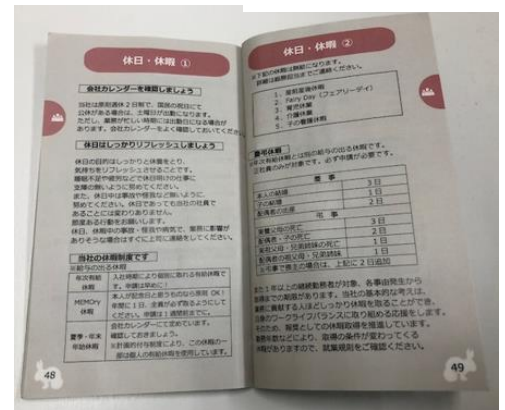 休日・休暇 ①
会社カレンダーを確認しましょう
当社は原則週休2日制で、国民の祝日にて
公休がある場合は、土曜日が出勤になります。
ただし、業務が忙しい時期には出勤日になる場合が
あります。会社カレンダーをよく確認しておいてください。
休日はしっかりリフレッシュしましょう
休日の目的はしっかりと休養をとり、
気持ちをリフレッシュさせることです。
睡眠不足や疲労などで休日明けの仕事に
支障の無いように努めてください。
また、休日中は事故や怪我など無いように、
努めてください。休日であっても当社の社員で
あることには変わりありません。
節度ある行動をお願いします。
休日、休暇中の事故・怪我や病気で、業務に影響が
ありそうな場合はすぐに上司に連絡をしてください。
当社の休暇制度です
※給与の出る休暇
年次有給休暇
入社時期により個別に取れる有給休暇です。申請は早めに!
MEMORY休暇
本人が記念日と思うものなら原則OK!
年間に1日、全員が必ず取るようにしてください。申請は1週間前までに。
夏季・年末年始休暇
会社カレンダーにて定めています。
確認しておきましょう。
※計画的付与制度により、この休暇の一部は個人の有給休暇を使用しています。
48
休日・休暇 ②
※下記の休暇は無給になります。
詳細は総務担当までご連絡ください。
1、産前産後休暇
2、Fairy Day(フェアリーデイ)
3、育児休業
4、介護休業
5、子の看護休暇
慶弔休暇
※年次有給休暇とは別の給与の出る休暇です。
正社員のみが対象です。必ず申請が必要です。
慶 事
本人の結婚 3日
子の結婚 2日
配偶者の出産 1日
弔 事
実養父母の死亡 3日
配偶者・子の死亡 2日
実祖父母・兄弟姉妹の死亡 1日
配偶者の祖父母・兄弟姉妹 1日
※弔事で喪主の場合は、上記に2日追加
また1年以上の継続勤務者が対象、各事由発生から
取得までの期限があります。当社の基本的な考えは、
業務に貢献する人ほどしっかり休暇を取ることができ、
自身のワークライフバランスに取り組める応援をします。
そのため、報奨としての休暇取得を推進しています。
勤務年数などにより、取得の条件が変わってくる
休暇がありますので、就業規則をご確認ください。
49